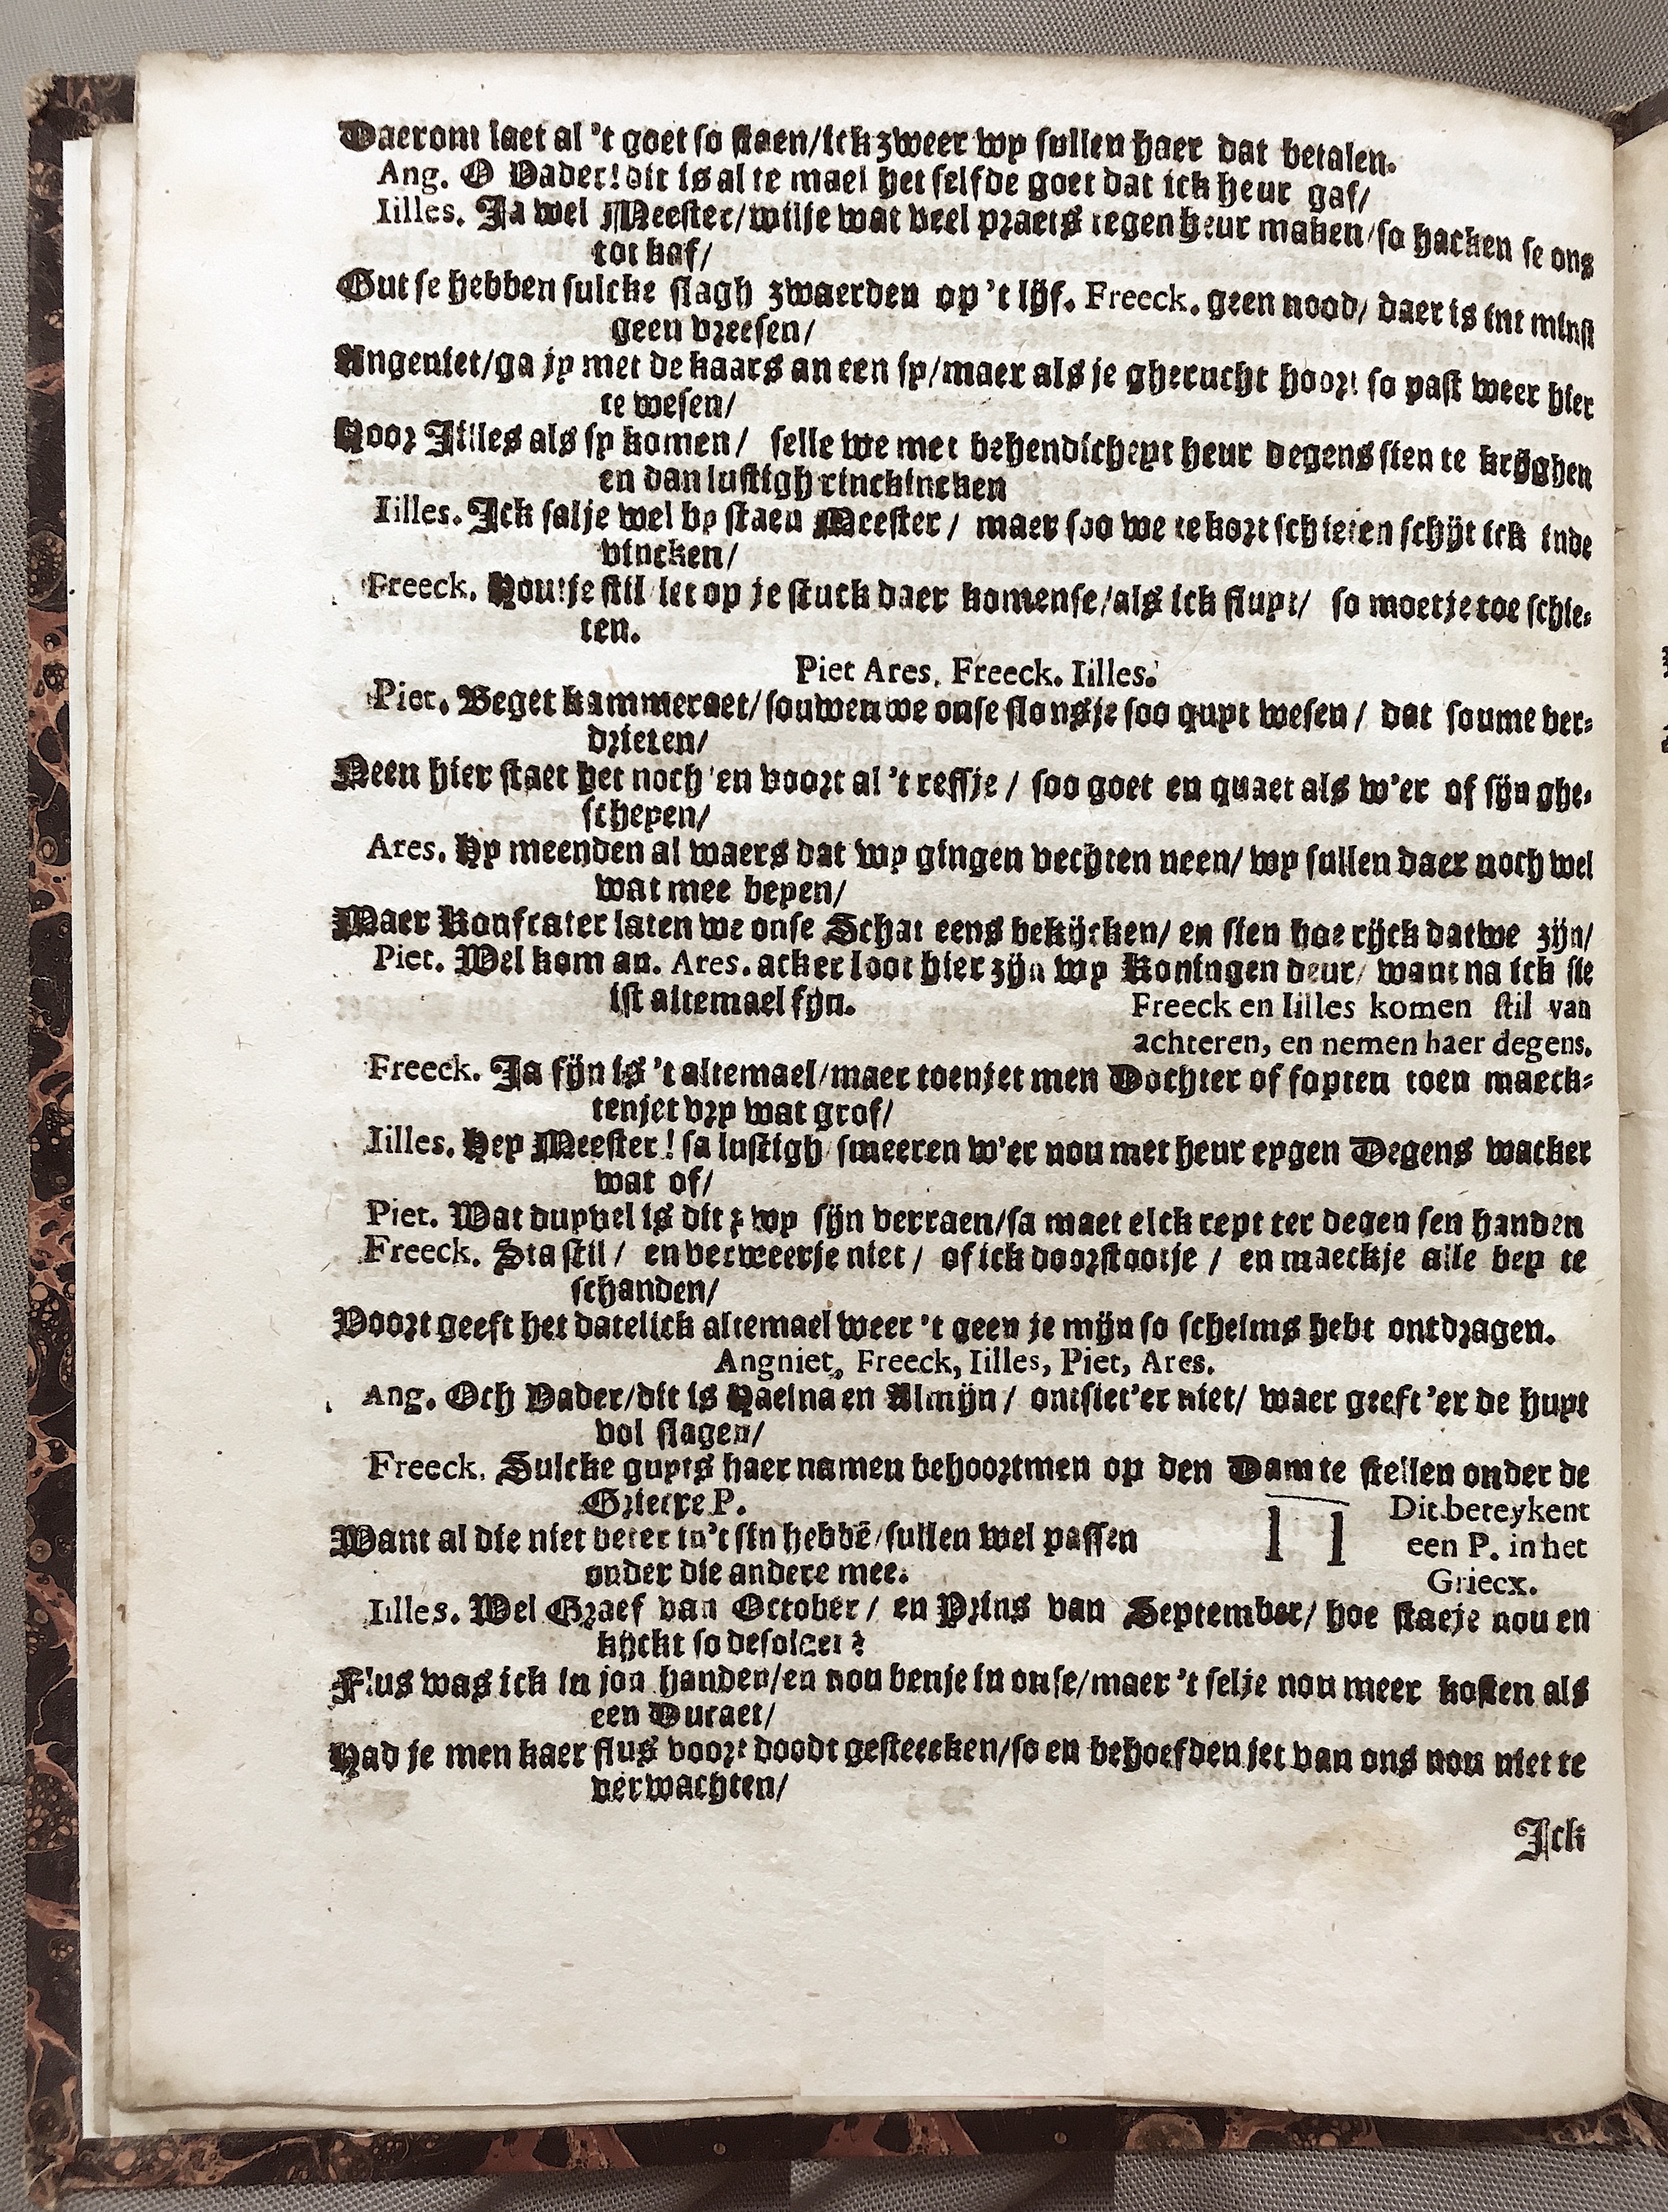 Daerom laet al 't goet so staen/ick zweer wy sullen haer dat betalen.
Ang. O Vader! dit is al te mael het selfde goet dat ick heur gaf/
Iilles. Ja wel Meester/wilje wat veel praets tegen heur maken/so hacken se ons
tot kaf/
Gut se hebben sulcke slagh zwaerden op 't lijf. Freeck. geen nood/ daer is int minst
geen vreesen/
Angeniet/ga jy met de kaars an een sy/maer als je gherucht hoort so past weer hier
te wesen/
Hoor Jilles als sy komen/ selle we met behendicheyt heur degens sien te krijghen
en dan lustigh rinckincken
Iilles. Ick salje wel by staen Meester/ maer soo we te kort schieten schijt ick inde
vincken/
Freeck. Houtje stil let op je stuck daer komense/als ick fluyt/ so moetje toe schie-
ten.
Piet Ares. Freeck. Iilles.
Piet. Beget kammeraet/souwen we onse slonsje soo quyt wesen/ dat soume ver-
drieten/
Neen hier staet het noch 'en voort al 't reffje/ soo goet en quaet als w'er of sijn ghe-
scheyen/
Ares. Hy meenden al waers dat wy gingen vechten neen/ wy sullen daer noch wel
wat mee beyen/
Maer Konfrater laten we onse Schat eens bekijcken/ en sien hoe rijck datwe zijn/
Piet. Wel kom an. Ares. acker loot hier zijn wy Koningen deur/ want na ick sie
ist altemael fijn.
Freeck en Iilles komen stil van
achteren, en nemen haer degens.
Freeck. Ja fijn is 't altemael/maer toenjet men Dochter of fopten toen maeck-
tenjet vry wat grof/
Iilles. Hey Meester! sa lustigh smeeren w'er nou met heur eygen Degens wacker
wat of/
Piet. Wat duyvel is dit? wy sijn verraen/sa maet elck rept ter degen sen handen
Freeck. Sta stil/ en verweerje niet/ of ick doorstootje/ en maeckje alle bey te
schanden/
Voort geeft het datelick altemael weer 't geen je mijn so schelms hebt ontdragen.
Angniet, Freeck, Iilles, Piet, Ares.
Ang. Och Vader/dit is Haelna en Almijn/ ontsiet'er niet/ maer geeft'er de huyt
vol slagen/
Freeck. Sulcke guyts haer namen behoortmen op den Dam te stellen onder de
Griecxe P.
Dit beteykent
een P. in het
Griecx.
Want al die niet beter in't sin hebbē/sullen wel passen
onder die andere mee.
Iilles. Wel Graef van October/ en Prins van September/ hoe staeje nou en
kijckt so desolaet?
Flus was ick in jou handen/en nou benje in onse/maer 't selje nou meer kosten als
een Ducaet/
Had je men kaer flus voort doodt gesteecken/so en behoefden jet van ons nou niet te
verwachten/
Ick